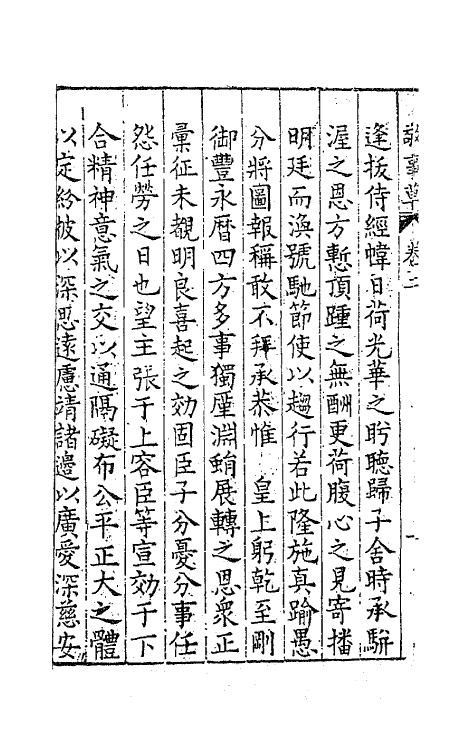 敬事草 卷二
逢拔侍經幃日荷光華之盻聽歸子舍時承駢
渥之恩方慙頂踵之無酬更荷腹心之見寄播
明廷而渙號馳節使以趨行若此隆施真踰愚
分將圖報稱敢不拜承恭惟 皇上躬乾至剛
御豐永曆四方多事獨廑淵蜎展轉之思衆正
彙征未覩明良喜起之効固臣子分憂分事任
怨任勞之日也望主張于上容臣等宣効于下
合精神意氣之交以通隔礙布公平正大之體
以定紛披以深思遠慮靖諸邊以廣愛深慈安